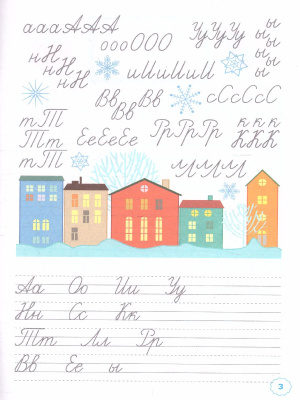 аааААА
оооООО
УуУуУу
ы
ы
ы
ы
ы
нН
нН
нН
иИиИиИ
Вв
Вв
Вв
сСсСсС
тТ
Тт
тТ
ЕеЕеЕе
РрРрРр
к к к
К К К
лЛлЛлЛ
Аа Оо Ии Уу
Нн Сс Кк
Тт Лл Рр
Вв Ее ы
3